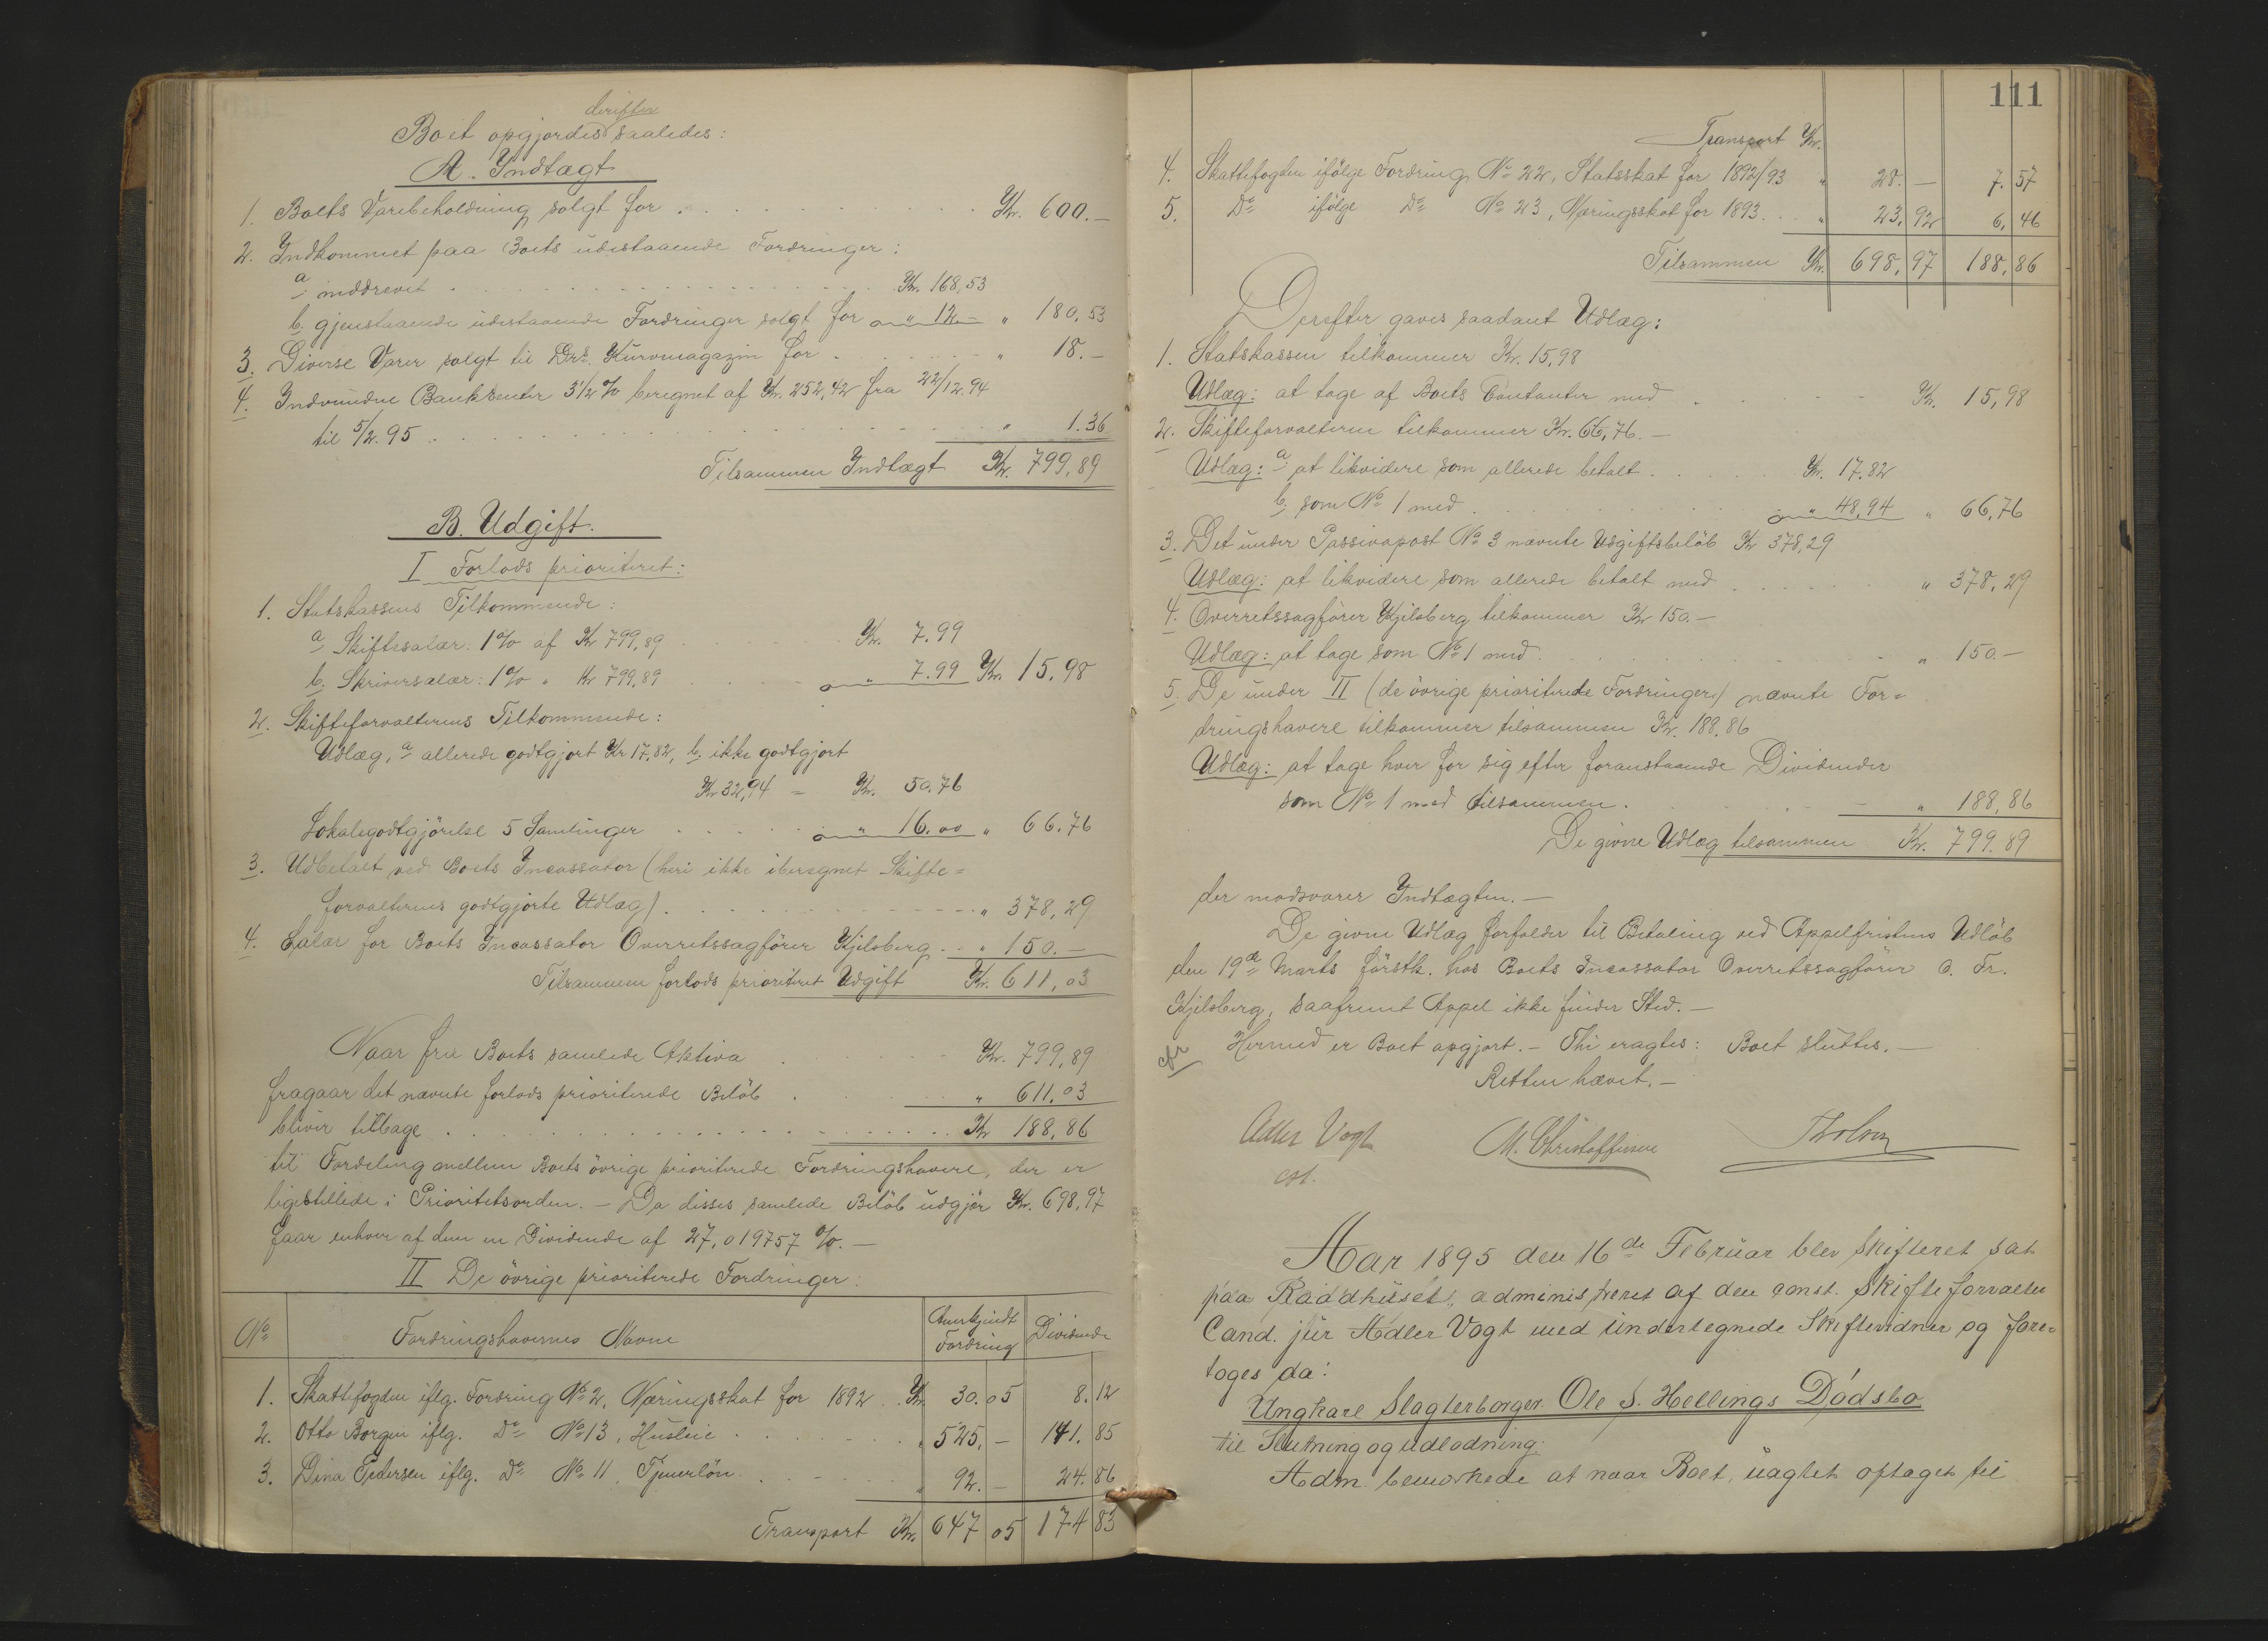 derefter
Boet opgjordes saaledes:
A. Indtægt
1. Boets Varebeholdning solgt for . . . Kr. 600.—
2. Indkommet paa Boets udestaaende Fordringer:
a inddrevet . . . Kr. 168,53
b. gjenstaaende udestaaende Fordringer solgt for " 12.— " 180,53
3. Diverse Varer solgt til Drs. Kurvmagazin for . . . " 18.—
4. Indvundne Bankrenter 3 1/2 % beregnet af Kr. 252,42 fra 22/12 94
til 5/2 95 . . . " 1.36
Tilsammen Indtægt Kr. 799,89
B. Udgift.
I Forlods prioriteret:
1. Statskassens Tilkommende:
a Skiftesalær: 1% af Kr 799,89 Kr. 7.99
b. Skriversalær: 1% " Kr 799,89 . . . " 7.99 Kr. 15,98
2. Skifteforvalterens Tilkommende:
Udlæg, a allerede godtgjort Kr 17,82, b. ikke godtgjort
Kr 32,94 = Kr. 50.76
Lokalegodtgjörelse 5 Samlinger . . . " 16.00 " 66.76
3. Udbetalt ved Boets Incassator (heri ikke iberegnet Skifte=
forvalterens godtgjorte Udlæg) . . . " 378,29
4. Salær for Boets Incassator Overretssagförer Kjelsberg . . " 150.—
Tilsammen forlods prioriteret Udgift Kr. 611,03
Naar fra Boets samlede Aktiva . . . Kr. 799,89
fragaar det nævnte forlods prioriterede Belöb . . . " 611,03
bliver tilbage . . . Kr 188,86
til Fordeling mellem Boets övrige prioriterede Fordringshavere, der er
ligestillede i Prioritetsorden. — Da disses samlede Belöb udgjör Kr. 698,97
faar enhver af dem en Dividende af 27,019757 %. —
II De övrige prioriterede Fordringer:
No Fordringshavernes Navne Anerkjendt Fordring Dividende
1. Skattefogden iflg. Fordring No 2, Næringsskat for 1892 . . Kr. 30.05 8.12
2. Otto Borgen iflg. Do No 13, Husleie . . . " 525. — 141. 85
3. Dina Pedersen iflg. Do No 11 Tjenerlön . . . " 92. — 24. 86
Transport Kr. 647 05 174 83
111
Transport Kr.
4. Skattefogden ifölge Fordring No 22, Statsskat for 1892/93 " 28. — 7. 57
5. Do ifölge Do No 23, Næringsskat for 1893. . . " 23. 92 6, 46
Tilsammen Kr. 698, 97 188, 86
Derefter gaves saadant Udlæg:
1. Statskassen tilkommer Kr. 15,98
Udlæg: at tage af Boets Contanter med . . . Kr. 15,98
2. Skifteforvalteren tilkommer Kr. 66,76. —
Udlæg: a at likvidere som allerede betalt . . . Kr. 17.82
b. som No 1 med . . . " 48,94 " 66,76
3. Det under Passivapost No 3 nævnte Udgiftsbelöb Kr 378,29
Udlæg: at likvidere som allerede betalt med . . . " 378,29
4. Overretssagförer Kjelsberg tilkommer Kr 150.—
Udlæg: at tage som No 1 med . . . " 150.—
5. De under II (de övrige prioriterede Fordringer) nævnte For=
dringshavere tilkommer tilsammen Kr. 188,86
Udlæg: at tage hver for sig efter foranstaaende Dividender
som No 1 med tilsammen . . . " 188,86
De givne Udlæg tilsammen Kr. 799.89
der modsvarer Indtægten. —
De givne Udlæg forfalder til Betaling ved Appelfristens Udlöb
den 19de Marts förstk. hos Boets Incassator Overretssagförer O. Fr.
Kjelsberg, saafremt Appel ikke finder Sted. —
Hermed er Boet opgjort. — Thi eragtes: Boet sluttes. —
Retten hævet. —
Adler Vogt
cst.
M. Christoffersen
Aar 1895 den 16de Februar blev Skifteret sat
paa Raadhuset, administreret af den const. Skifteforvalter
Cand. jur Adler Vogt med undertegnede Skiftevidner og fore=
toges da:
Ungkarl Slagterborger Ole S. Hellings Dödsbo
til Slutning og udlodning.
Adm. bemærkede at naar Boet, uagtet optaget til